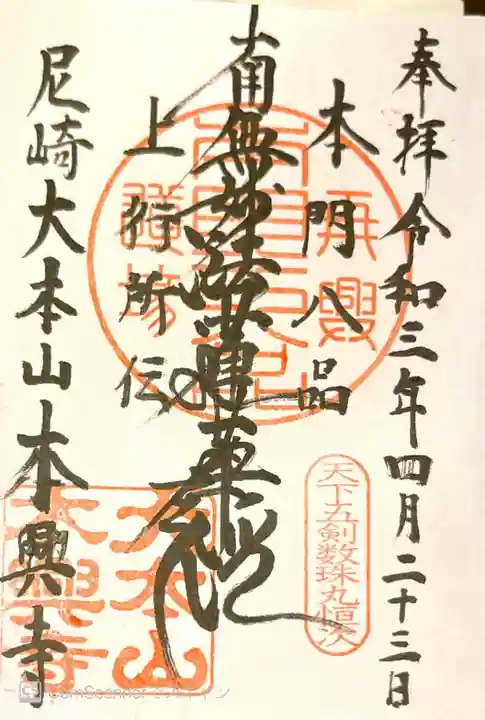 奉拝 令和三年四月二十三日
本門八品
南無妙法蓮華経
上行所伝
尼崎 大本山 本興寺
天下五剣数珠丸恒次
大本山
本興寺
CamScanner